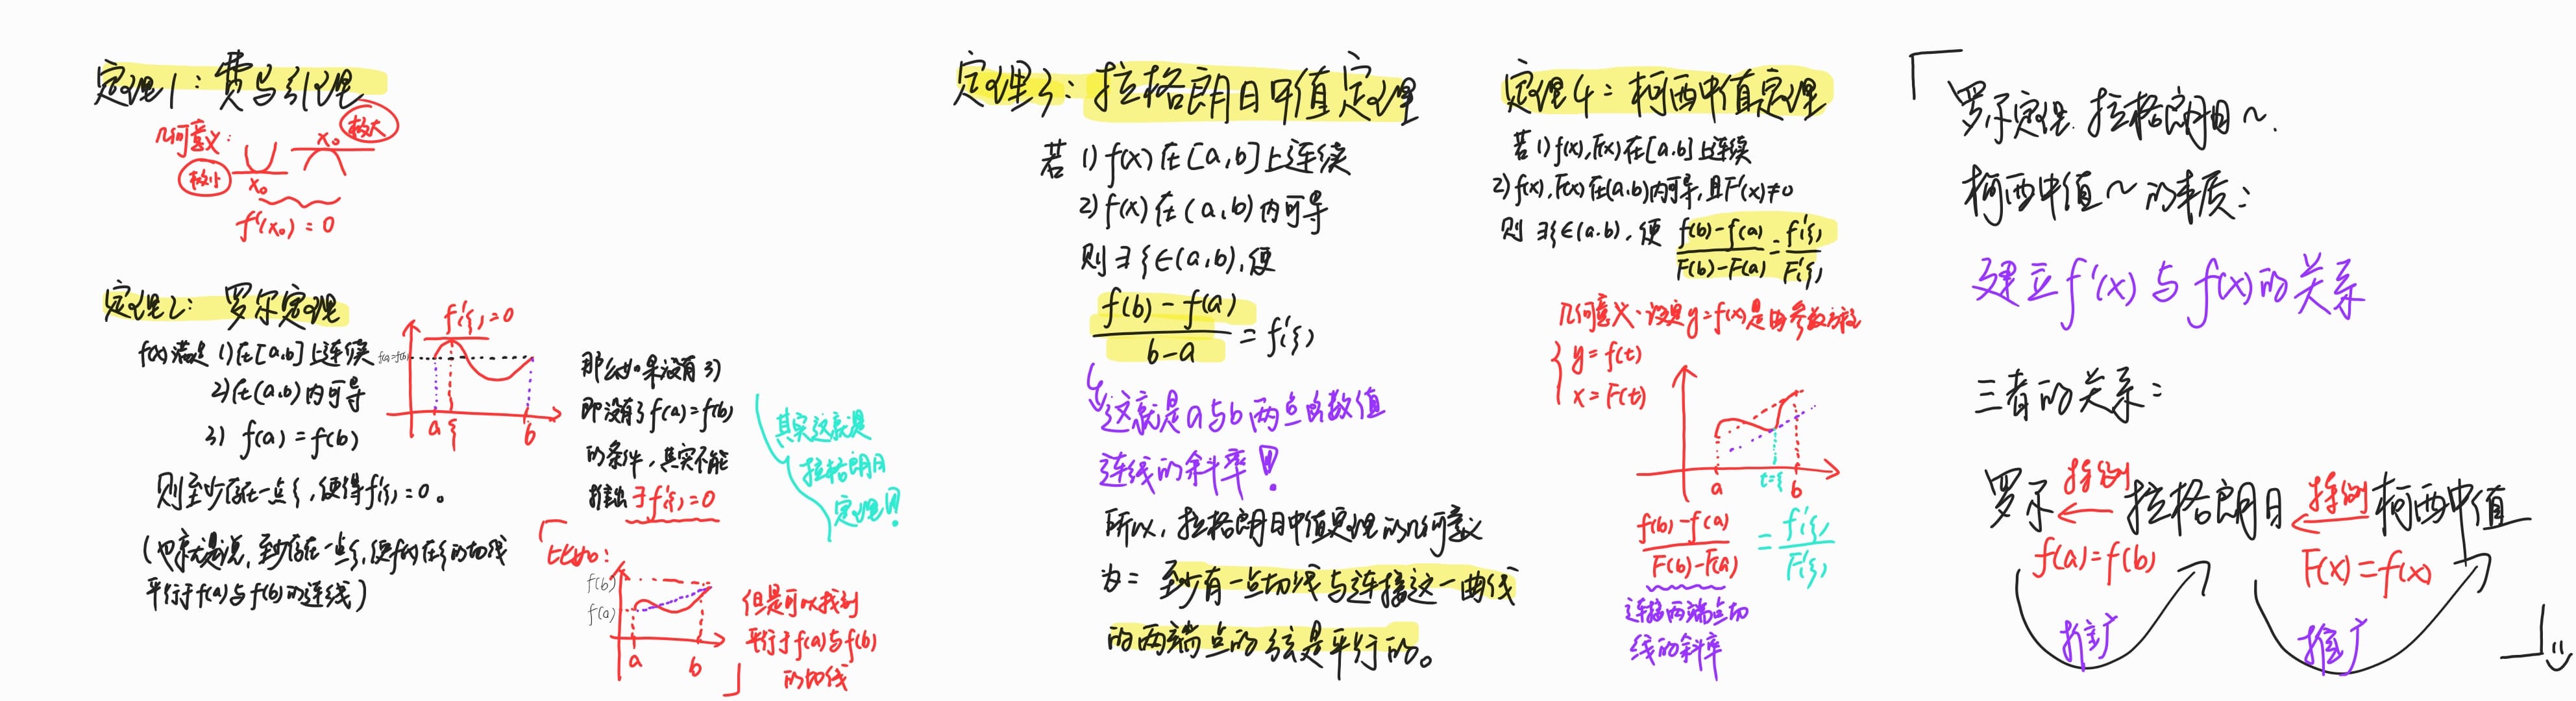 定理1：费马引理
几何意义：
极大
x₀
极小
x₀
f'(x₀) = 0
定理2：罗尔定理
f(x)满足 1)在[a,b]上连续
2)在(a,b)内可导
3) f(a) = f(b)
则至少存在一点ξ,使得f'(ξ) = 0。
(也就是说，至少存在一点ξ,使f(x)在ξ的切线
平行于f(a)与f(b)的连线)
f'(ξ) = 0
f(a)=f(b)
a ξ b
那么如果没有3)
即没有了f(a) = f(b)
的条件，其实不能
推出∃f'(ξ) = 0
其实这就是
拉格朗日
定理!!
比如:
f(b)
f(a)
a b
但是可以找到
平行于f(a)与f(b)
的切线
定理3：拉格朗日中值定理
若 1) f(x) 在[a,b]上连续
2) f(x) 在 (a,b) 内可导
则∃ξ∈(a,b),使
f(b) - f(a)
b-a
= f'(ξ)
这就是a与b两点函数值
连线的斜率!!
所以，拉格朗日中值定理的几何意义
为= 至少有一点切线与连接这一曲线
的两端点的弦是平行的。
定理4：柯西中值定理
若1) f(x),F(x)在[a,b]上连续
2) f(x),F(x)在(a,b)内可导,且F'(x)≠0
则 ∃ξ∈(a,b),使 f(b)-f(a) = f'(ξ)
F(b)-F(a) F'(ξ)
几何意义:设定y=f(x)是由参数方程
y = f(t)
x = F(t)
a t=ξ b
f(b)-f(a) = f'(ξ)
F(b)-F(a) F'(ξ)
连接两端点切
线的斜率
罗尔定理. 拉格朗日~.
柯西中值~的本质:
建立f'(x)与f(x)的关系
三者的关系:
罗尔 特例 拉格朗日 特例 柯西中值
f(a)=f(b) F(x)=f(x)
推广 推广